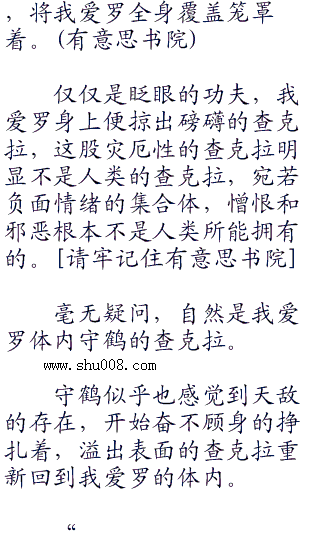 ，将我爱罗全身覆盖笼罩
着。(有意思书院)
仅仅是眨眼的功夫，我
爱罗身上便掠出磅礴的查克
拉，这股灾厄性的查克拉明
显不是人类的查克拉，宛若
负面情绪的集合体，憎恨和
邪恶根本不是人类所能拥有
的。[请牢记住有意思书院]
毫无疑问，自然是我爱
罗体内守鹤的查克拉。
www.shu008.com
守鹤似乎也感觉到天敌
的存在，开始奋不顾身的挣
扎着，溢出表面的查克拉重
新回到我爱罗的体内。
“